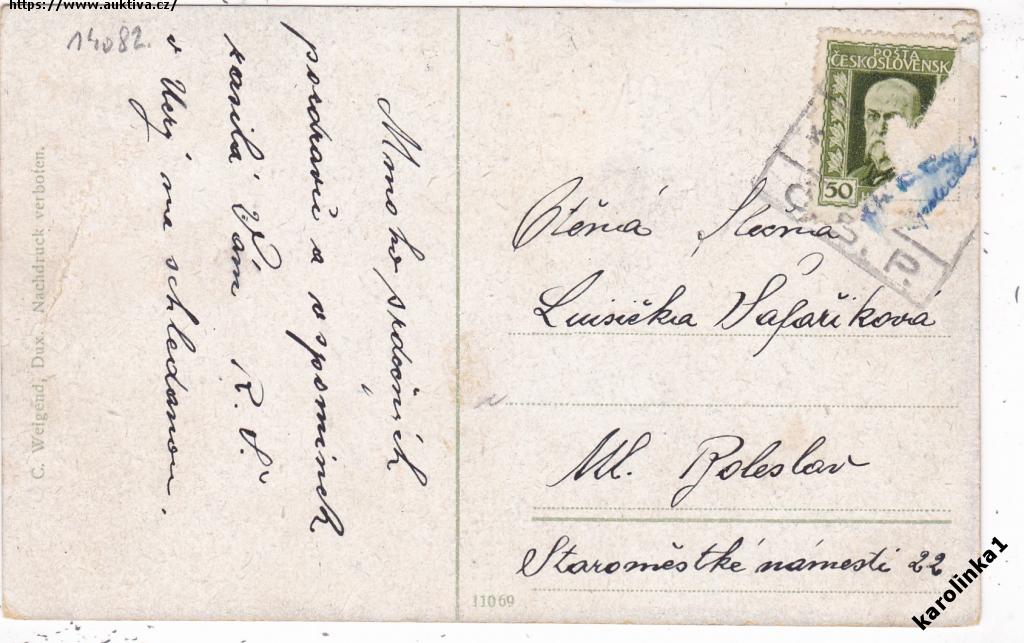 https://www.auktiva.cz/
14082.
Mnoho srdečních
pozdravů a vzpomínek
zasílá Vám R. Š.
na schledanou.
C. Weigend, Dux. Nachdruck verboten.
11069
POŠTA
ČESKOSLOVENSK
50
Č.S.P.
Ctěná Slečna
Luisička Šafaříková
Ml. Boleslav
Staroměstké náměstí 22
karolinka1